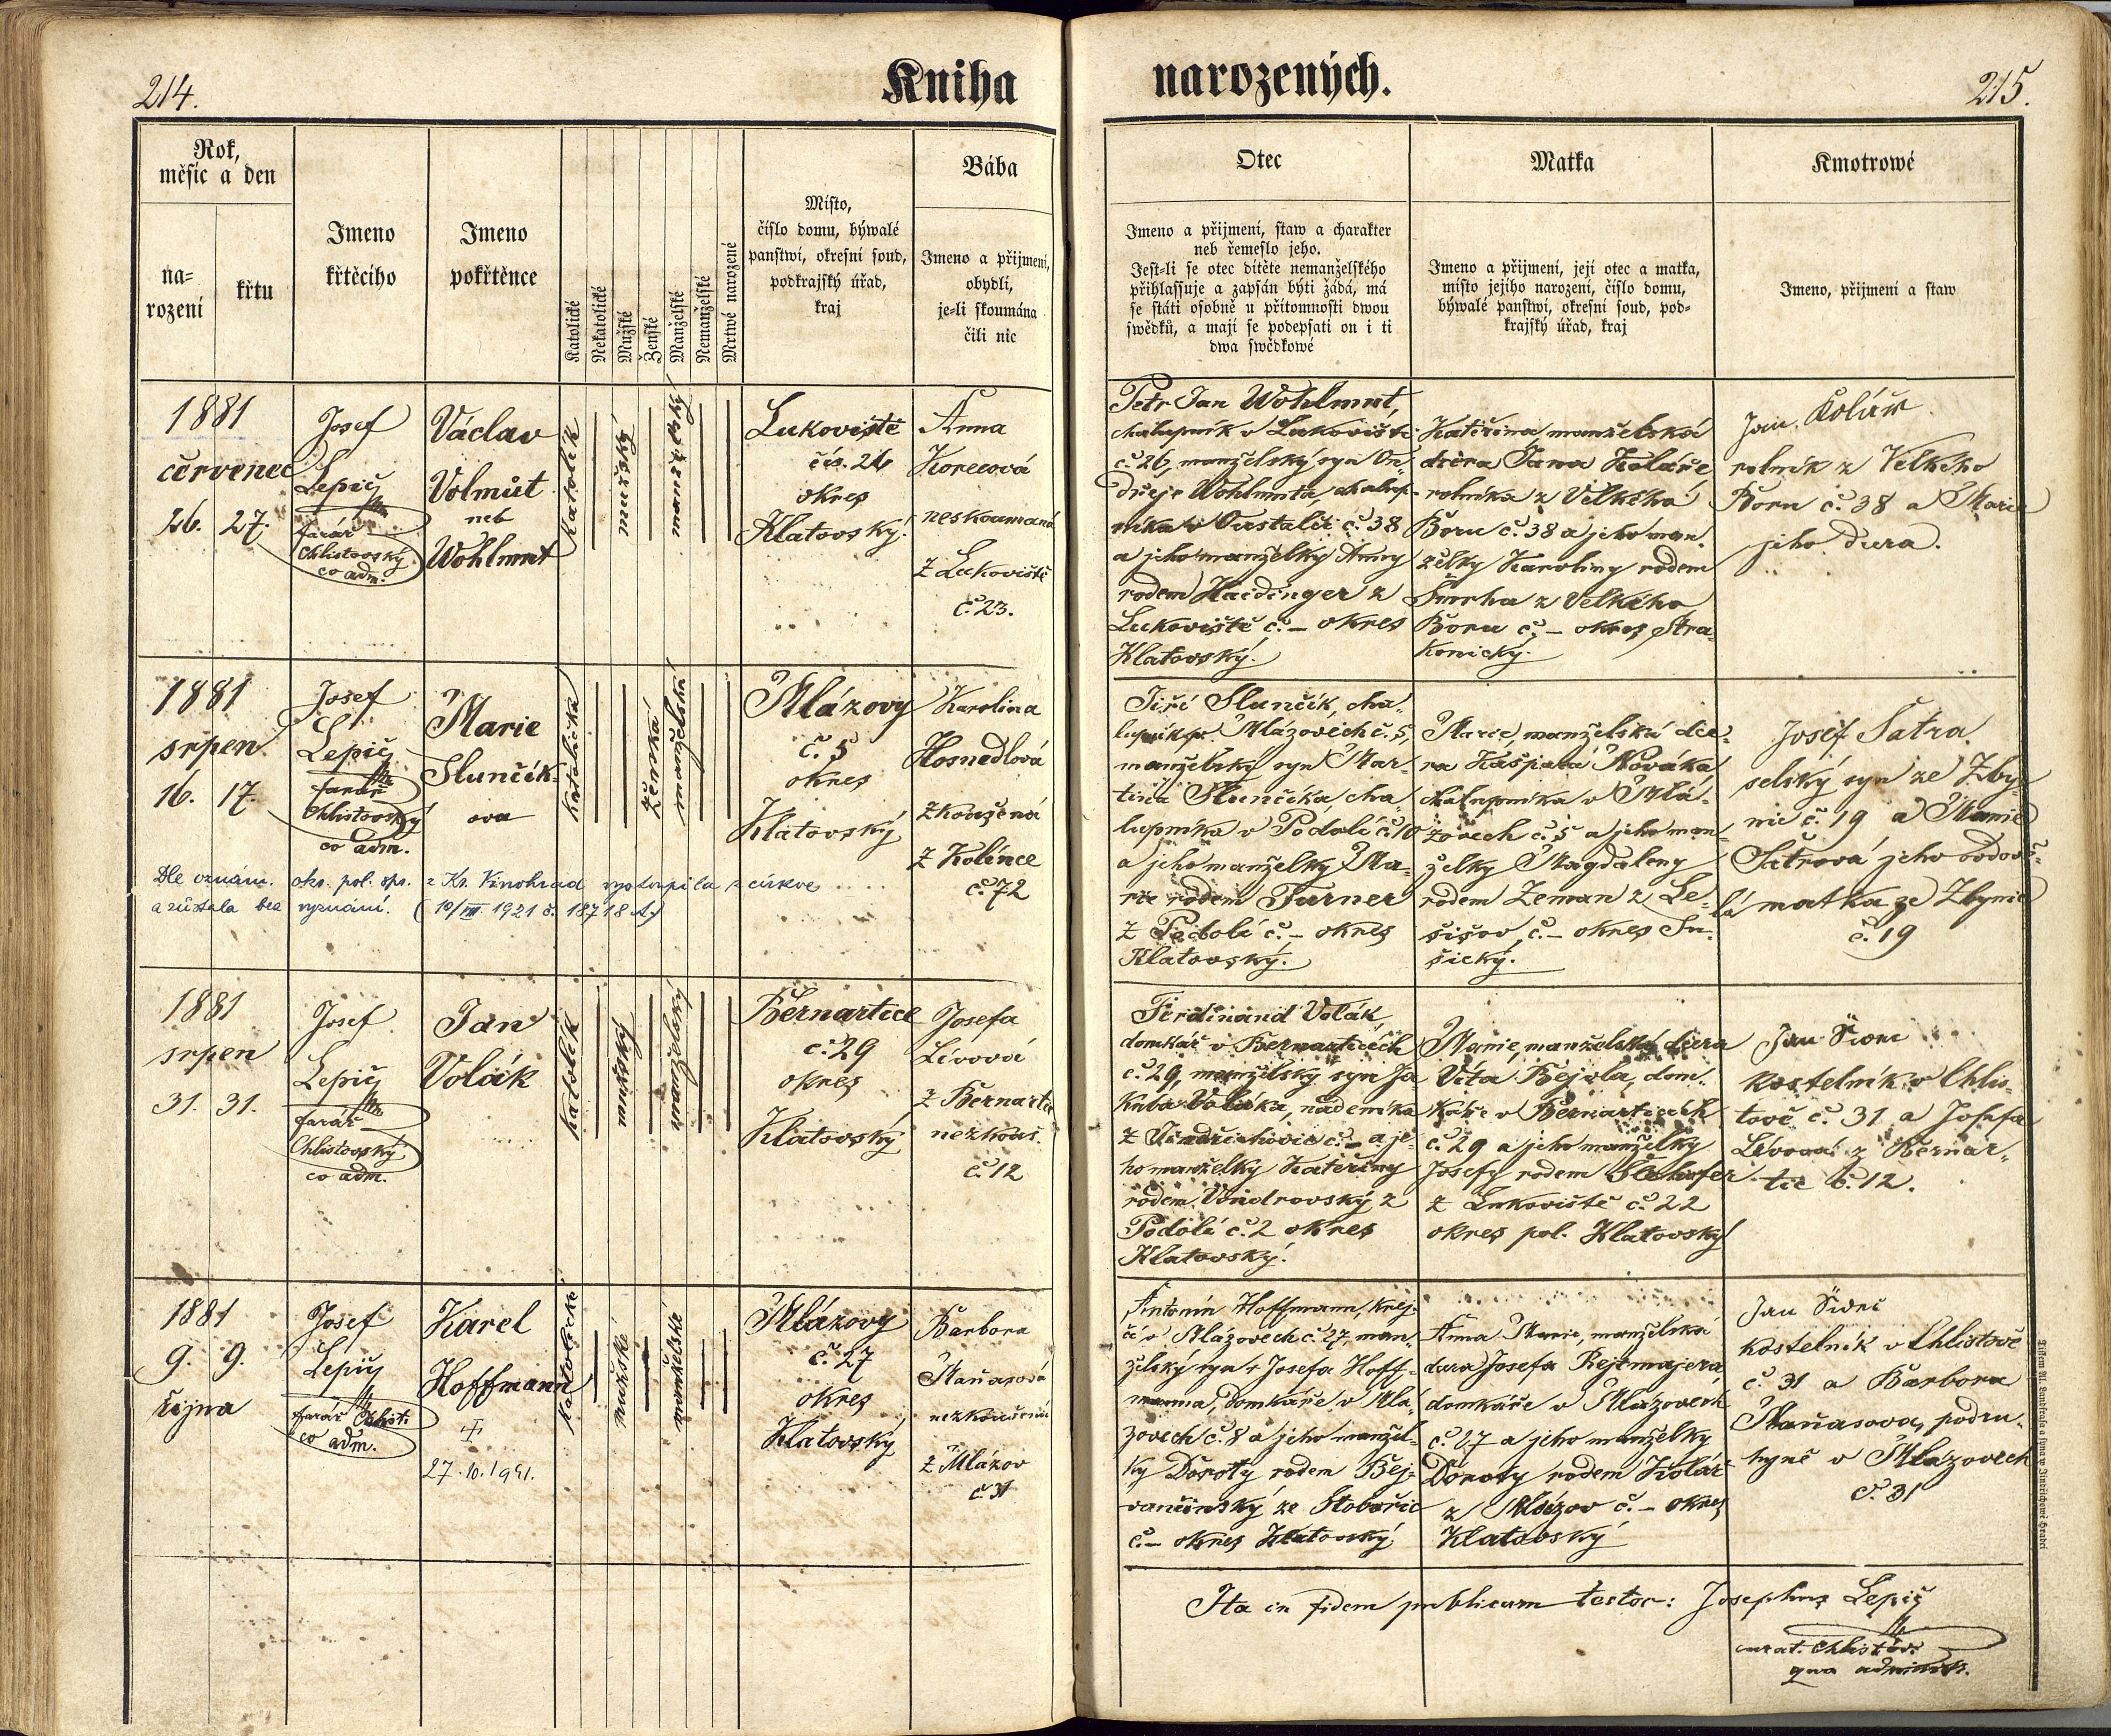 214.
Kniha
narozených.
215.
Rok,
měsíc a den
na=
rození
křtu
Jmeno
křtěcího
Jmeno
pokřtěnce
Katolické
Nekatolické
Mužské
Ženské
Manželské
Nemanželské
Mrtwě narozené
Místo,
číslo domu, býwalé
panstwí, okresní soud,
podkrajský úřad,
kraj
Bába
Jmeno a přijmení,
obydlí,
je=li skoumána
čili nic
Otec
Jmeno a přijmení, staw a charakter
neb řemeslo jeho.
Jest=li se otec dítěte nemanželského
přihlassuje a zapsán býti žádá, má
se státi osobně u přítomnosti dwou
swědků, a mají se podepsati on i ti
dwa swědkowé
Matka
Jmeno a přijmení, její otec a matka,
místo jejího narození, číslo domu,
býwalé panstwí, okresní soud, pod=
krajský úřad, kraj
Kmotrowé
Jmeno, přijmení a staw
1881
červenec
26. 27.
Josef
Lepič
farář
Chlistovský
co adm.
Václav
Volmút
neb
Wohlmut
Katolík
mužský
manželský
Lukoviště
čís. 26
okres
Klatovský.
Anna
Korecová
neskoumaná
z Lukoviště
č. 23.
Petr Jan Wohlmut,
chalupník v Lukovišti
č. 26, manželský syn On-
dřeje Wohlmuta chalup-
níka č. 38
a jeho manželky Anny
rodem Haidinger z
Lukoviště č. – okres
Klatovský.
Kateřina manželská
dcera Jana Koláře
rolníka z Velkého
Boru č. 38 a jeho man.
želky Karoliny rodem
z Velkého
Boru č. – okres Stra-
konický.
Jan Kolář
rolník z Velkého
Boru č. 38 a Marie
jeho dcera.
1881
srpen
16. 17.
Josef
Lepič
farář
Chlistovský
co adm.
Marie
Slunčík-
ova
katolická
ženská
manželská
Mlázovy
č. 5
okres
Klatovský
Karolina
Hosnedlová
zkoušená
z Kolince
č. 72
Dle oznám. oks. pol. spr. z Kr. Vinohrad vystoupila z církve
a zůstala bez vyznání. (10/III 1921 č. 18718 )
Jiří Slunčík, cha-
lupník Mlázovech č. 5,
manželský syn Mar-
tina Slunčíka, cha-
lupníka v Podolí č. 10
a jeho manželky Ma-
rie rodem Turner
z Podolí č. – okres
Klatovský.
Marie, manželská dce-
ra Kašpara Nováka
chalupníka v Mlá-
zovech č. 5 a jeho man-
želky Magdaleny
rodem Zeman z Le-
šišov č. – okres Su-
šický.
Josef Šatra
selský syn ze Zby-
nic č. 19 a Marie
Šatrová jeho ovdově-
lá matka ze Zbynic
č. 19
1881
srpen
31. 31.
Josef
Lepič
farář
Chlistovský
co adm.
Jan
Volák
Katolík
mužský
manželský
Bernartice
č. 29
okres
Klatovský
Josefa
Lívová
z Bernartic
nezkouš.
č. 12
Ferdinand Volák
domkář v Bernarticích
č. 29, manželský syn Ja
kuba Voláka, nádeníka
z Jindřichovic č. – a je-
ho manželky Kateřiny
rodem Vondrovský z
Podolí č. 2 okres
Klatovský.
Marie, manželská dcera
Víta Bejvla, dom-
káře v Bernarticích
č. 29 a jeho manželky
Josefy rodem
z Lukoviště č. 22
okres pol. Klatovský
Jan
kostelník v Chlis-
tově č. 31 a Josefa
Lívová z Bernar-
tic č. 12.
1881
9. 9.
října
Josef
Lepič
farář Chlist.
co adm.
Karel
Hoffmann
27. 10. 1941.
katolické
mužské
manželské
Mlázovy
č. 27
okres
Klatovský
Barbora
Maňasová
nezkoušená
z Mlázov
č. 31
Antonín Hoffmann, krej-
čí v Mlázovech č. 27, man-
želský syn + Josefa Hoff-
manna, domkáře v Mlá-
zovech č. 8 a jeho manžel-
ky Doroty rodem Bej-
č. – okres Klatovský
Anna Marie, manželská
dcera Josefa Rejtmajera
domkáře v Mlázovech
č. 27 a jeho manželky
Doroty rodem Kolář
z Mlázov č. – okres
Klatovský
Jan
kostelník v Chlistově
č. 31 a Barbora
Maňasova, podru-
hyně v Mlázovech
č. 31
Ita in fidem publicam testor: Josephus Lepič
curat. Chlistov.
qua administr.